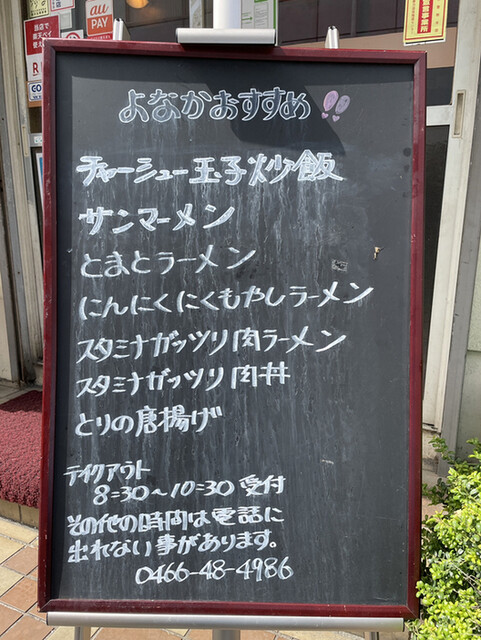 よなかおすすめ!!
チャーシュー玉子炒飯
サンマーメン
とまとラーメン
にんにくにくもやしラーメン
スタミナガッツリ肉ラーメン
スタミナガッツリ肉丼
とりの唐揚げ
テイクアウト
8=30〜10=30 受付
その他の時間は電話に
出れない事があります。
0466-48-4986
au
PAY